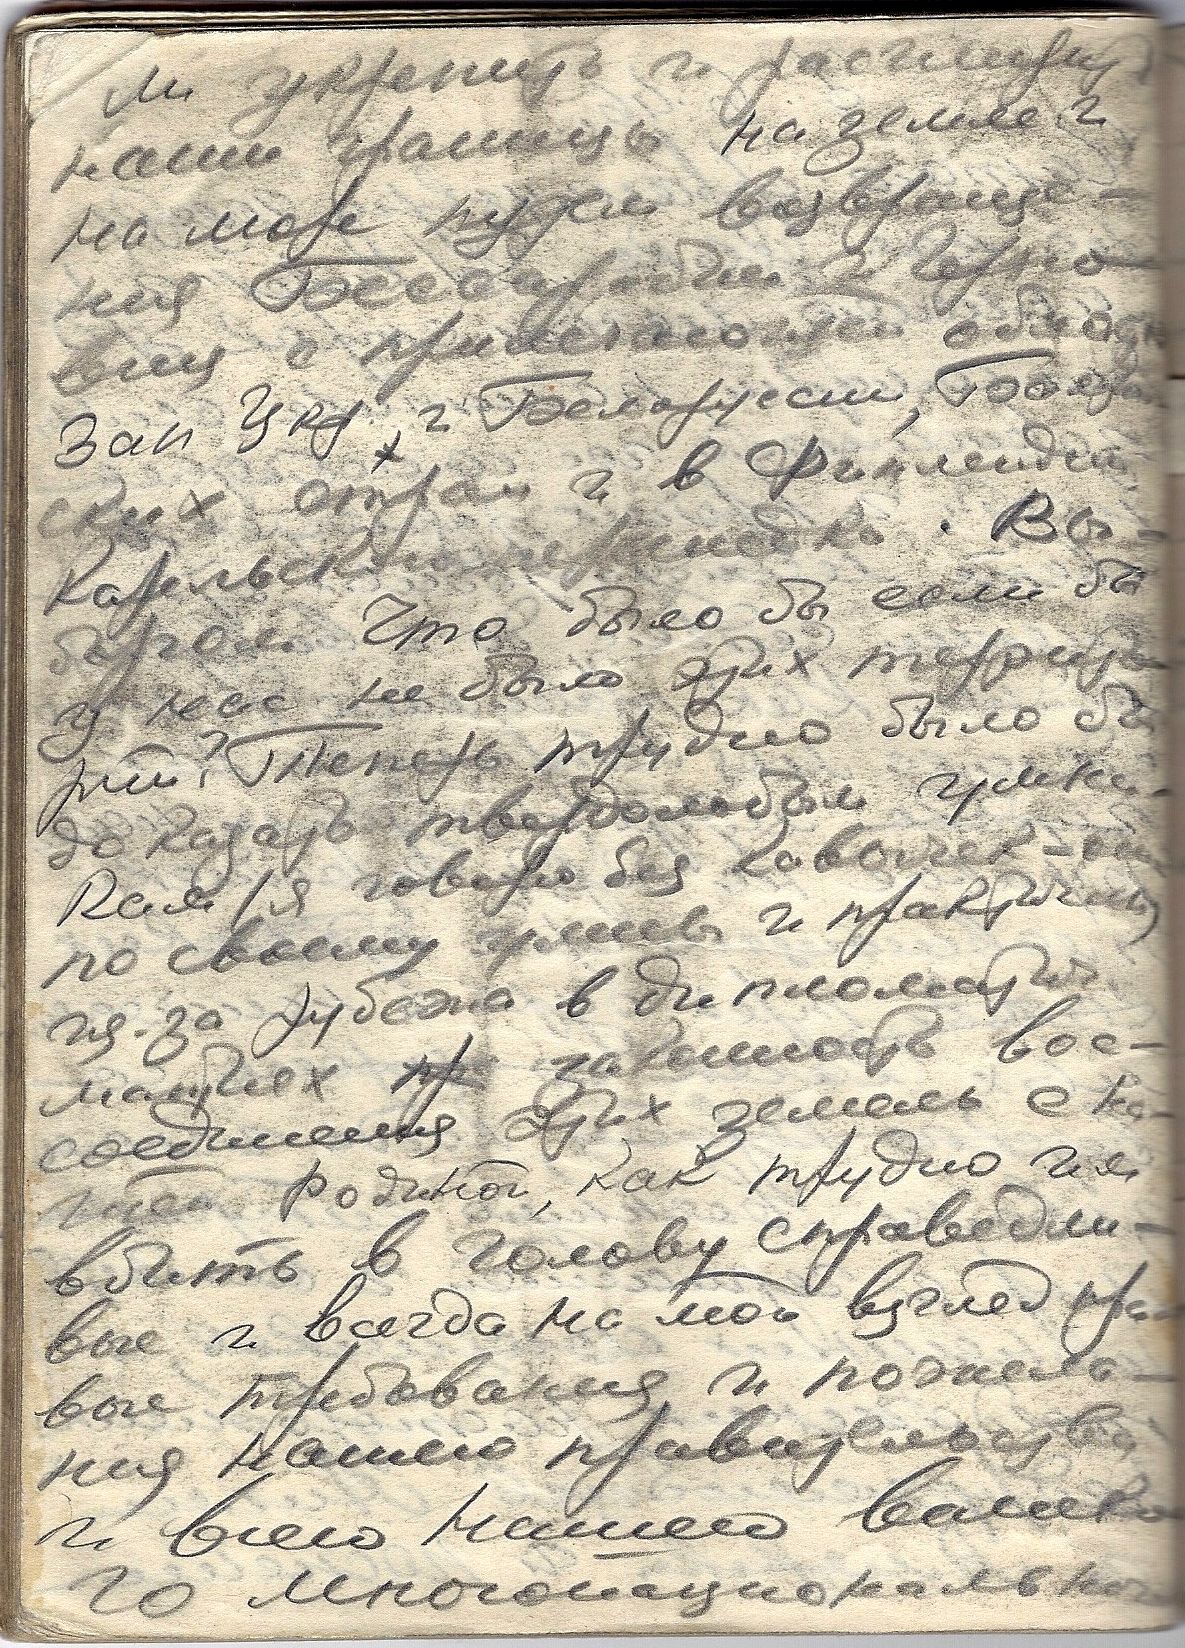 ли укрепить и расширить
наши границы на земле и
на море путем возвраще-
ния Бессарабии и Черно-
виц с прилегающей областью
Зап Укр, и Белоруссии,
ских стран и в Финляндии
Карельского перешейка. Вы-
боргом. Что было бы если бы
у нас не было этих террито
рий? Теперь трудно было бы
доказать твердолобым умни-
кам (я говорю без кавычек - они
по своему умны и практичны)
из-за рубежа в дипломатич
законность вос-
соединения этих земель с на-
шей Родиной, как трудно им
вбить в голову справедли-
вые и всегда на мой взгляд пра
вые требования и пожела-
ния нашего правительства
и всего нашего велико
го многонационально